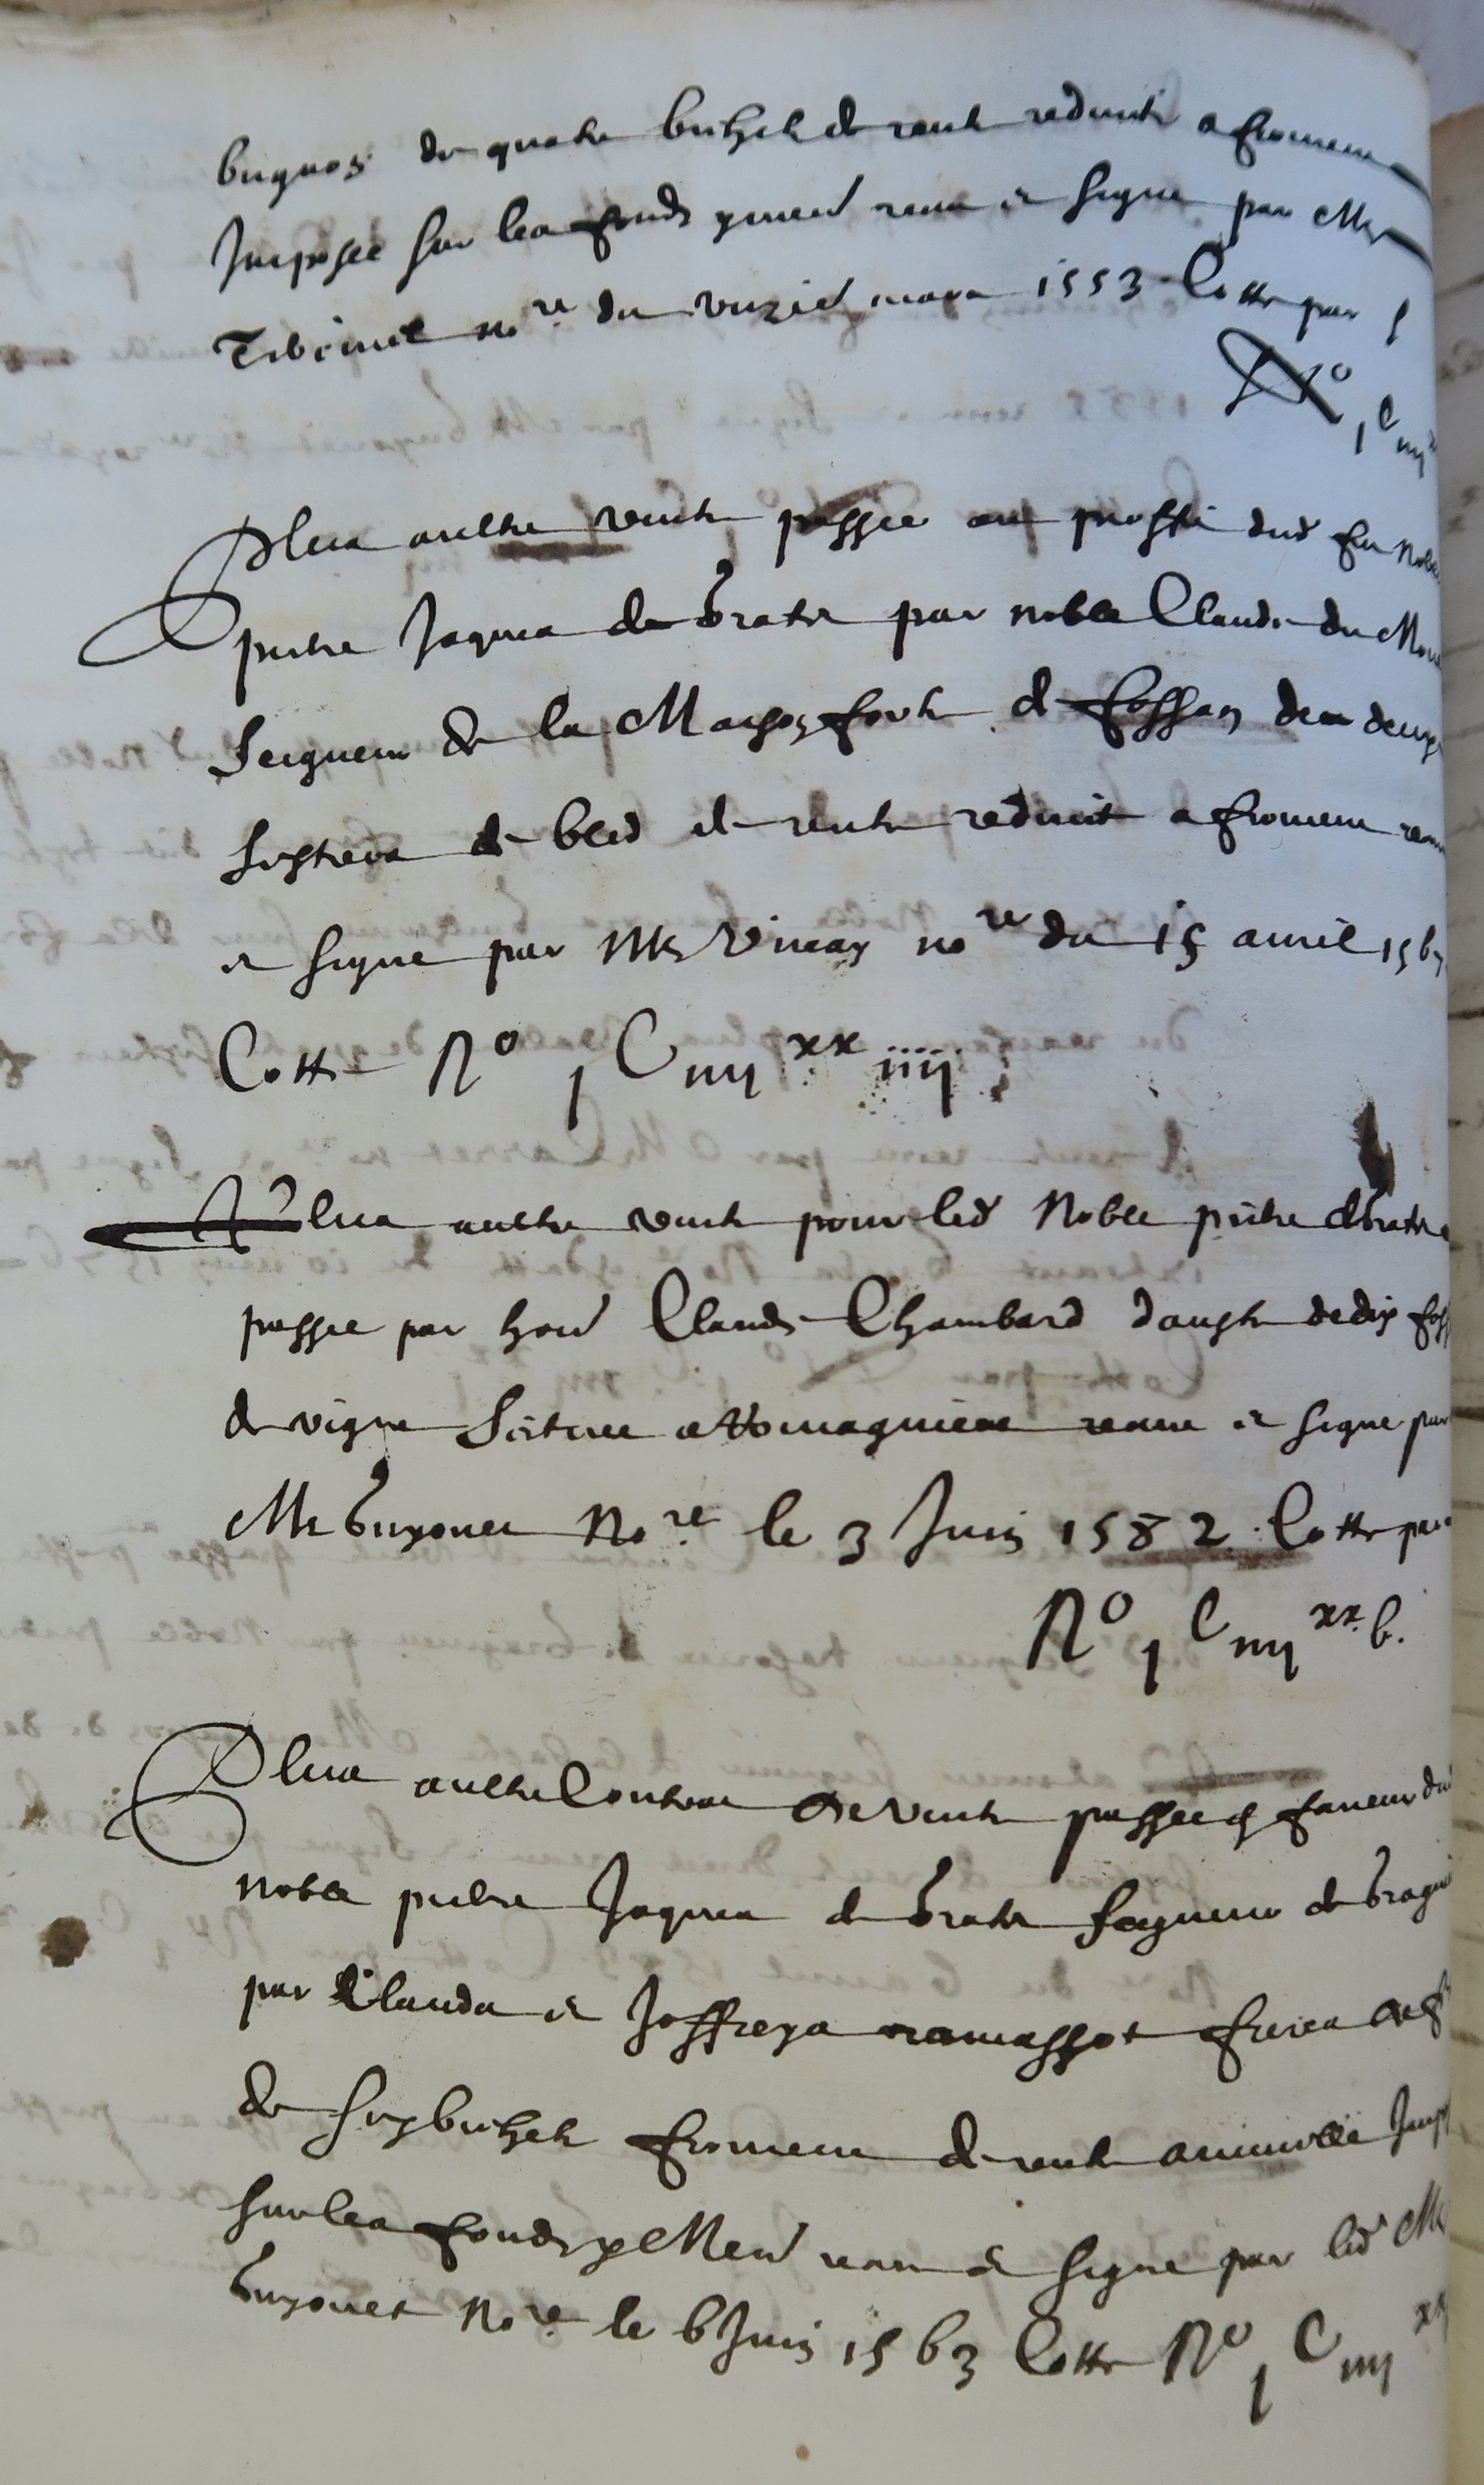 de quatre bichets de rente reduits a froment
Imposee sur les fonds y mend receu et signe par Me
no.re du unzie.d mars 1553. Cotte par
N° 1 C iiij
Plus aultre vente passee au proffit dud feu noble
pierre Jaques de Grate par noble Claude du
Seigneur de la Maison forte de Cossan des deux
sestiers de bled de rente reduit a froment receu
et signe par Me Vincay no.re du 15 auril 156
Cotte N° 1 C iiij xx iiij
Plus aultre vente pour led Noble pierre de Grate
passee par hon.d Claude Chambard d'aouste de dix foss
de vigne Scituee a receu et signe par
Me Guyonet No.re le 3 Juin 1582. Cotte par
N° 1 C iiij xx. v.
Plus aultre Contract de vente passee en faueur dud
noble pierre Jaques de Grate seigneur de
par Claude et Joffreys ramassot freres
de six bichets froment de rente annuelle Imp
sur les fonds y Mend receu et signe par led Me
Guyonet No.re le 6 Juin 1563 Cotte N° 1 C iiij xx